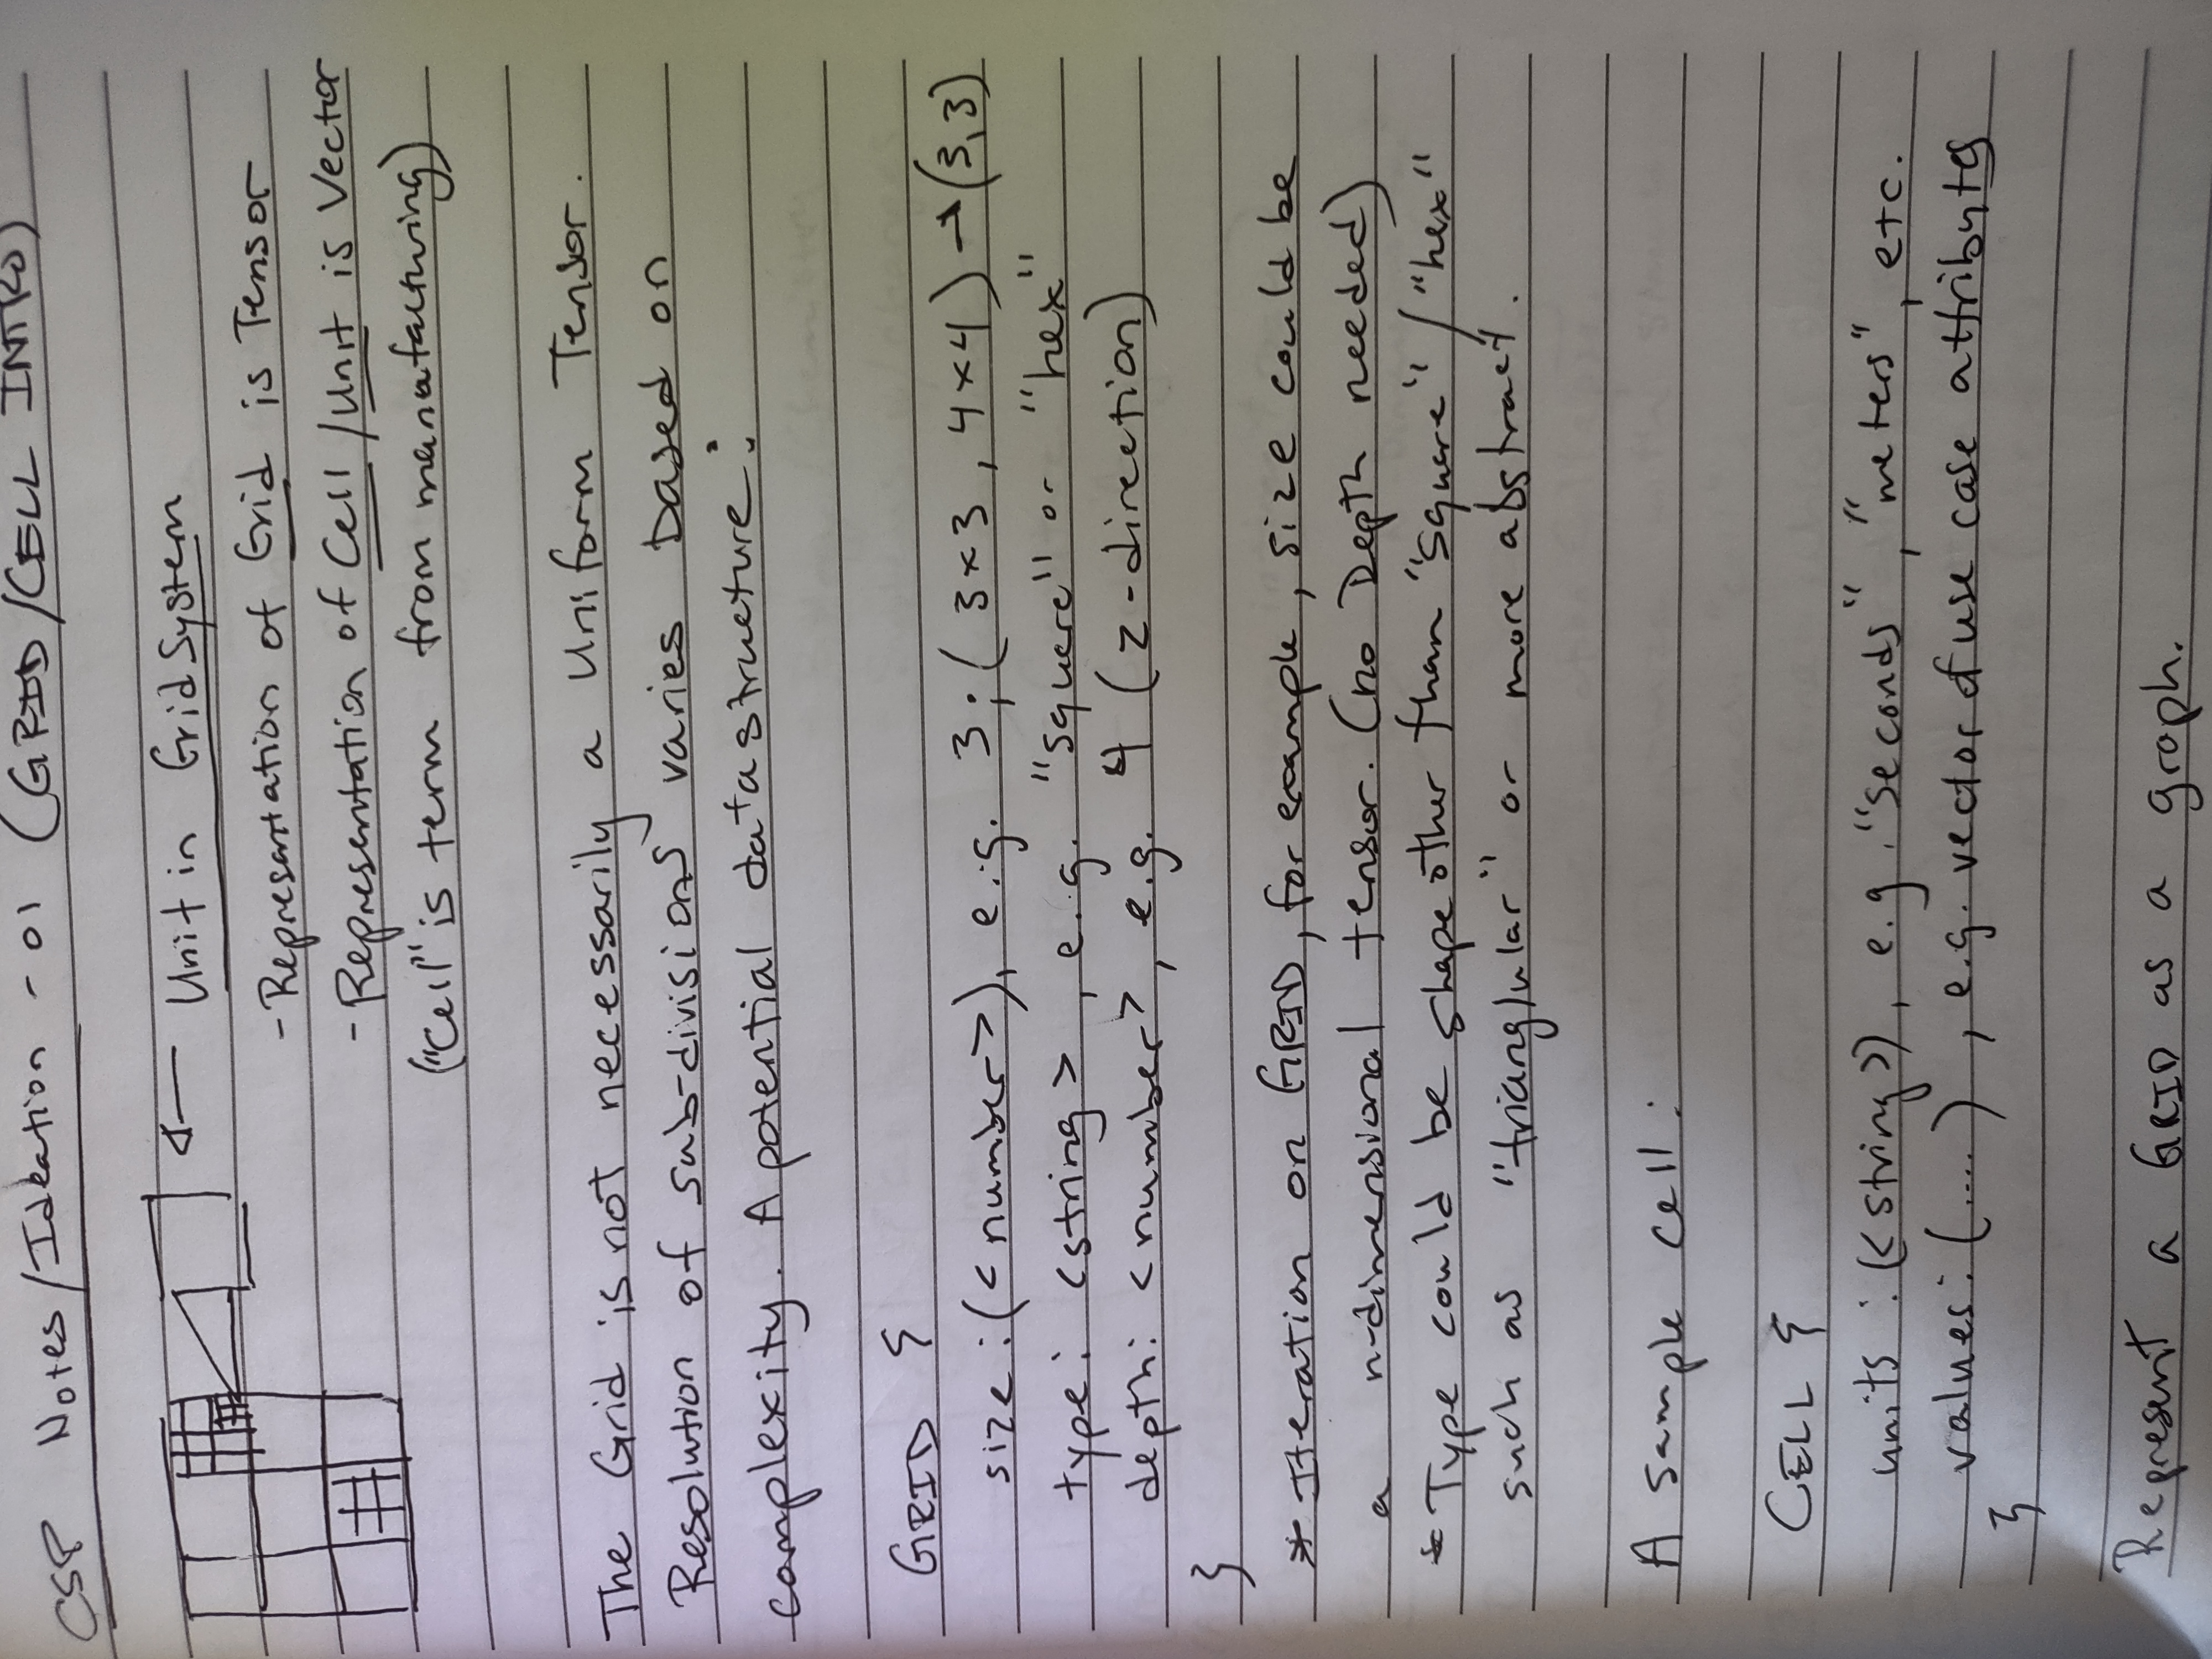 CSP Notes/Ideation - 01 (GRID/CELL INTRO)
Unit in Grid System
- Representation of Grid is Tensor
- Representation of Cell/Unit is Vector
("Cell" is term from manufacturing)
The Grid is not necessarily a Uniform Tensor.
Resolution of sub-divisions varies based on
complexity. A potential datastructure:
GRID {
size: (<number>), e.g. 3; (3x3, 4x4) → (3,3)
type: <string>, e.g. "square" or "hex"
depth: <number>, e.g. 4 (z-direction)
}
* Iteration on GRID, for example, size could be
a n-dimensional tensor. (no Depth needed)
* Type could be shape other than "square"/"hex"
such as "trianglular" or more abstract.
A sample cell:
CELL {
units: (<string>), e.g. "seconds", "meters", etc.
values: (....), e.g. vector of use case attributes
}
Represent a GRID as a graph.